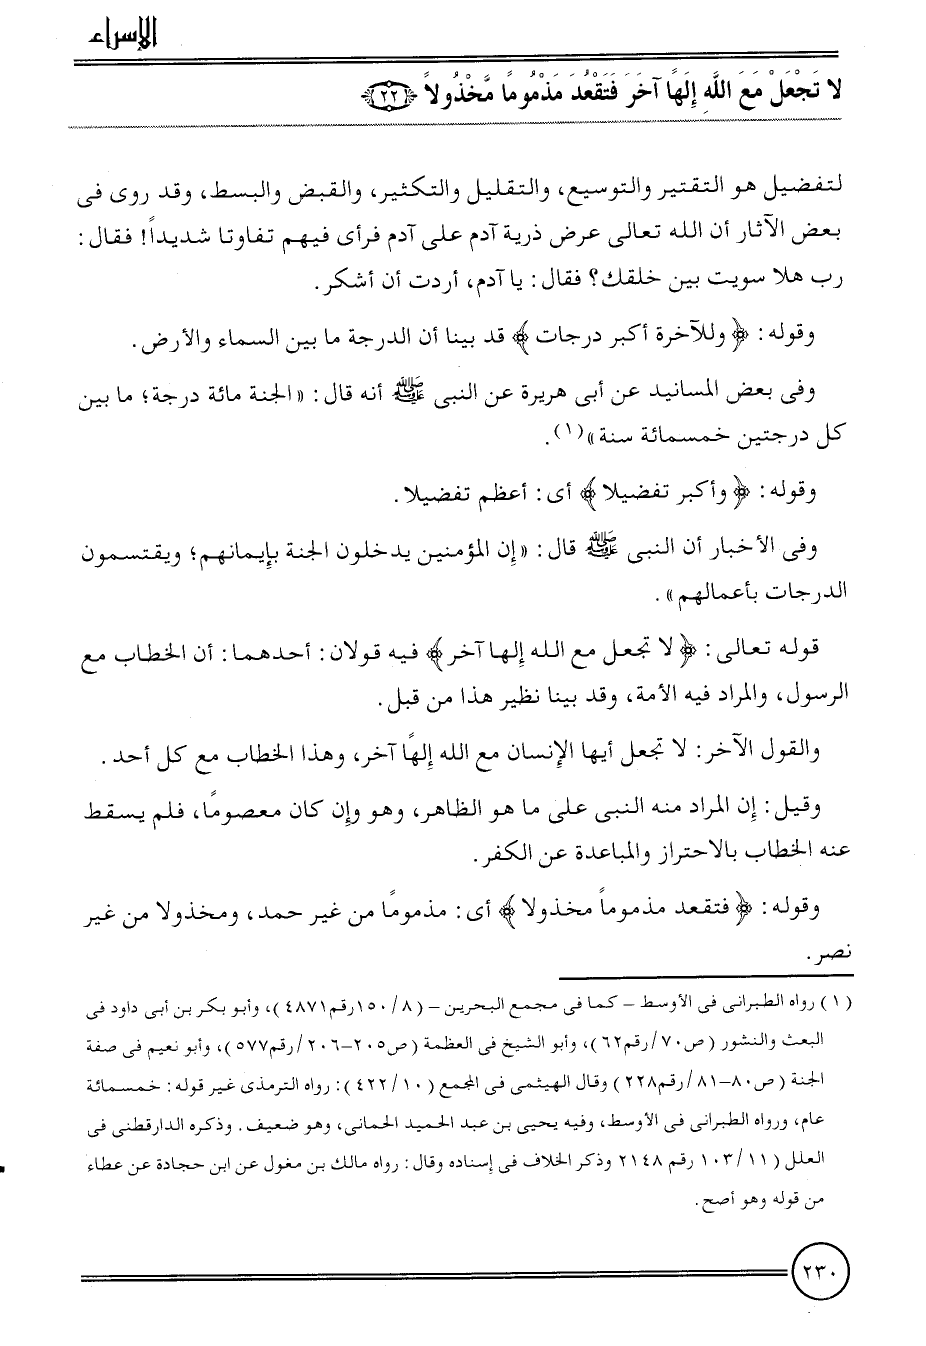 الإسراء
لا تَجْعَلْ مَعَ اللَّهِ إِلَهًا آخَرَ فَتَقْعُدَ مَذْمُومًا مَّخْذُولاً ﴿٢٢﴾
لتفضيل هو التقتير والتوسيع، والتقليل والتكثير، والقبض والبسط، وقد روى فى
بعض الآثار أن الله تعالى عرض ذرية آدم على آدم فرأى فيهم تفاوتا شديداً! فقال:
رب هلا سويت بين خلقك؟ فقال: يا آدم، أردت أن أشكر.
وقوله: ﴿وللآخرة أكبر درجات﴾ قد بينا أن الدرجة ما بين السماء والأرض.
وفى بعض المسانيد عن أبى هريرة عن النبى ﷺ أنه قال: «الجنة مائة درجة؛ ما بين
كل درجتين خمسمائة سنة»(١).
وقوله: ﴿وأكبر تفضيلا﴾ أى: أعظم تفضيلا.
وفى الأخبار أن النبى ﷺ قال: «إن المؤمنين يدخلون الجنة بإيمانهم؛ ويقتسمون
الدرجات بأعمالهم».
قوله تعالى: ﴿لا تجعل مع الله إلها آخر﴾ فيه قولان: أحدهما: أن الخطاب مع
الرسول، والمراد فيه الأمة، وقد بينا نظير هذا من قبل.
والقول الآخر: لا تجعل أيها الإنسان مع الله إلهًا آخر، وهذا الخطاب مع كل أحد.
وقيل: إن المراد منه النبى على ما هو الظاهر، وهو وإن كان معصومًا، فلم يسقط
عنه الخطاب بالاحتراز والمباعدة عن الكفر.
وقوله: ﴿فتقعد مذموماً مخذولا﴾ أى: مذمومًا من غير حمد، ومخذولا من غير
نصر.
(١) رواه الطبرانى فى الأوسط – كما فى مجمع البحرين – (٨/١٥٠رقم٤٨٧١)، وأبو بكر بن أبى داود فى
البعث والنشور (ص٧٠/رقم٦٢)، وأبو الشيخ فى العظمة (ص٢٠٥–٢٠٦/رقم٥٧٧)، وأبو نعيم فى صفة
الجنة (ص٨٠–٨١/رقم٢٢٨) وقال الهيثمى فى المجمع (١٠/٤٢٢): رواه الترمذى غير قوله: خمسمائة
عام، ورواه الطبرانى فى الأوسط، وفيه يحيى بن عبد الحميد الحمانى، وهو ضعيف. وذكره الدارقطنى فى
العلل (١١/١٠٣ رقم ٢١٤٨ وذكر الخلاف فى إسناده وقال: رواه مالك بن مغول عن ابن حجادة عن عطاء
من قوله وهو أصح.
٢٣٠